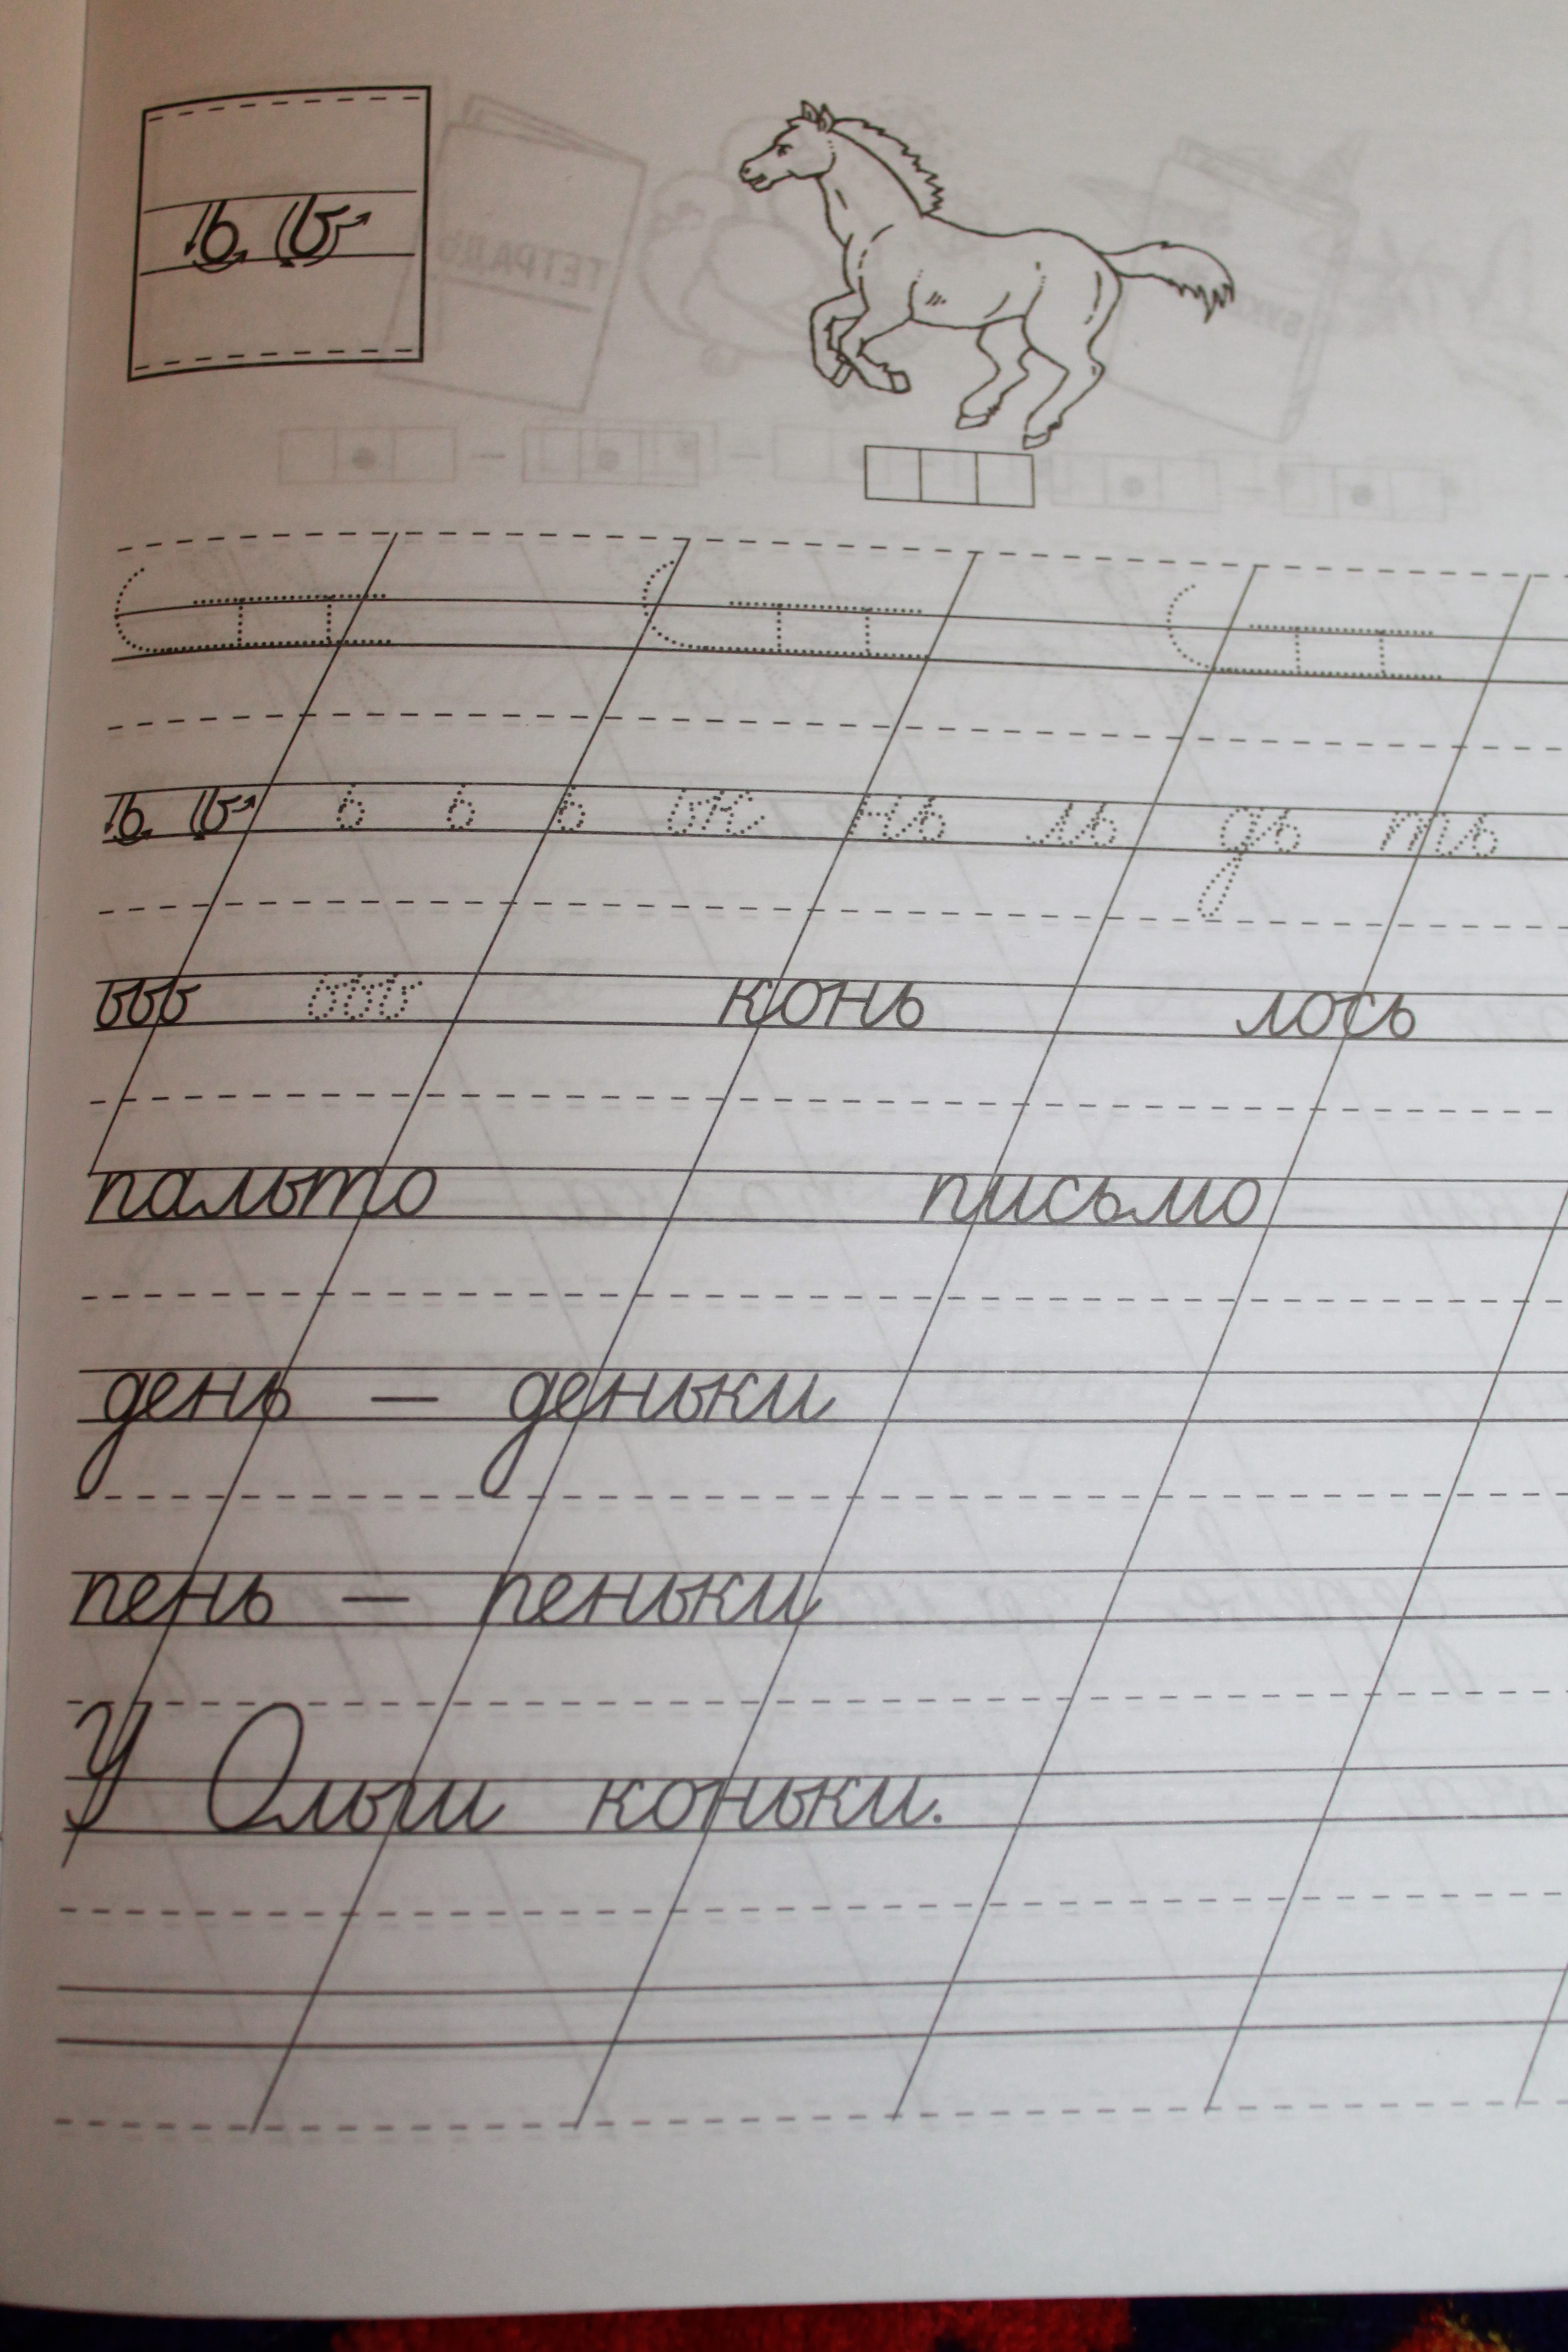 ь ь
ь ь ь ь ь ьк нь ль дь ть
ььь ььь конь лось
пальто письмо
день — деньки
пень — пеньки
У Ольги коньки.